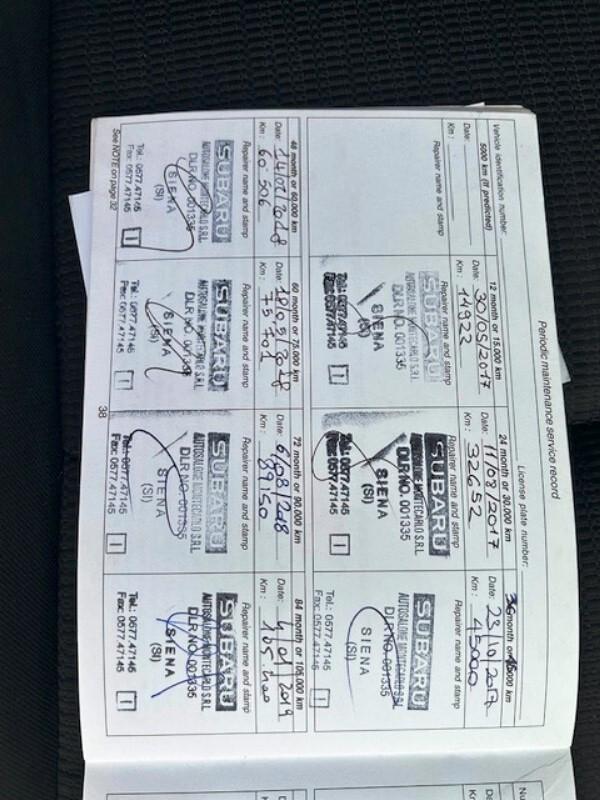 Periodic maintenance service record
Vehicle identification number:
License plate number:
5000 km (If predicted)
Date:
Km:
Repairer name and stamp
12 month or 15.000 km
Date: 30/05/2017
Km: 14922
Repairer name and stamp
SUBARU
AUTOSALONE MONTECARLO S.R.L.
DLR NO. 001335
SIENA
(SI)
Tel.: 0577.47145
Fax: 0577.47145
I
24 month or 30.000 km
Date: 11/08/2017
Km: 32652
Repairer name and stamp
SUBARU
AUTOSALONE MONTECARLO S.R.L.
DLR NO. 001335
SIENA
(SI)
Tel.: 0577.47145
Fax: 0577.47145
I
36 month or 45000 km
Date: 23/10/2017
Km: 45000
Repairer name and stamp
SUBARU
AUTOSALONE MONTECARLO S.R.L.
DLR NO. 001335
SIENA
(SI)
Tel.: 0577.47145
Fax: 0577.47145
I
48 month or 60.000 km
Date: 14/02/2018
Km: 60.506
Repairer name and stamp
SUBARU
AUTOSALONE MONTECARLO S.R.L.
DLR NO. 001335
SIENA
(SI)
Tel.: 0577.47145
Fax: 0577.47145
I
60 month or 75.000 km
Date: 18/05/2018
Km: 75701
Repairer name and stamp
SUBARU
AUTOSALONE MONTECARLO S.R.L.
DLR NO. 001335
SIENA
(SI)
Tel.: 0577.47145
Fax: 0577.47145
I
72 month or 90.000 km
Date: 6/08/218
Km: 89150
Repairer name and stamp
SUBARU
AUTOSALONE MONTECARLO S.R.L.
DLR NO. 001335
SIENA
(SI)
Tel.: 0577.47145
Fax: 0577.47145
I
84 month or 105.000 km
Date: 4/01/2019
Km:
Repairer name and stamp
SUBARU
AUTOSALONE MONTECARLO S.R.L.
DLR NO. 001335
SIENA
(SI)
Tel.: 0577.47145
Fax: 0577.47145
I
See NOTE on page 32
38